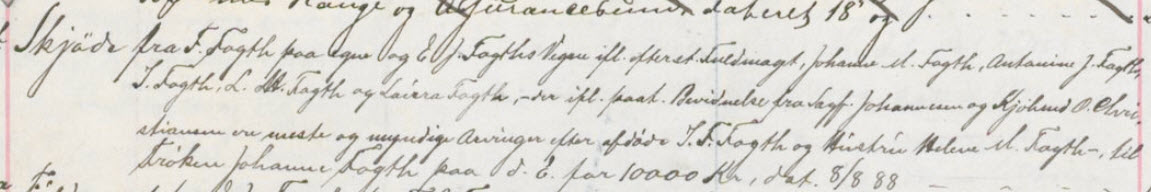 og Assurancebum dateret 18 og
Skjöde fra F. Fagth paa egne og E J. Fagths Vegne ifl. efterst. Fuldmagt, Johanne M. Fagth, Antonine J. Fagth,
T. Fagth, L. M. Fagth og Laura Fagth, - der ifl. paat. Bevidnelse fra Sagf. Johannesen og Kjöbmd O. Chri-
stiansen ere eneste og myndige Arvinger efter afdöde J. F. Fagth og Hustru Helene M. Fagth -, til
Fröken Johanne Fagth paa d. E. for 10000 Kr, dat. 8/8 88